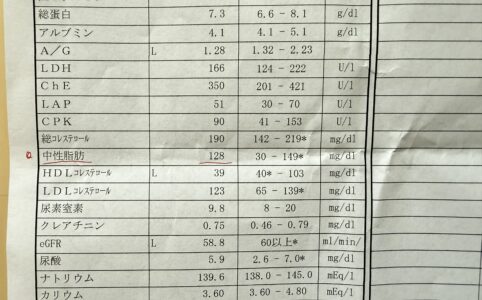 総蛋白 7.3 6.6 - 8.1 g/dl
アルブミン 4.1 4.1 - 5.1 g/dl
A/G L 1.28 1.32 - 2.23
LDH 166 124 - 222 U/l
ChE 350 201 - 421 U/l
LAP 51 30 - 70 U/l
CPK 90 41 - 153 U/l
総コレステロール 190 142 - 219* mg/dl
中性脂肪 128 30 - 149* mg/dl
HDLコレステロール L 39 40* - 103 mg/dl
LDLコレステロール 123 65 - 139* mg/dl
尿素窒素 9.8 8 - 20 mg/dl
クレアチニン 0.75 0.46 - 0.79 mg/dl
eGFR L 58.8 60以上* ml/min/
尿酸 5.9 2.6 - 7.0* mg/dl
ナトリウム 139.6 138.0 - 145.0 mEq/l
カリウム 3.60 3.60 - 4.80 mEq/l